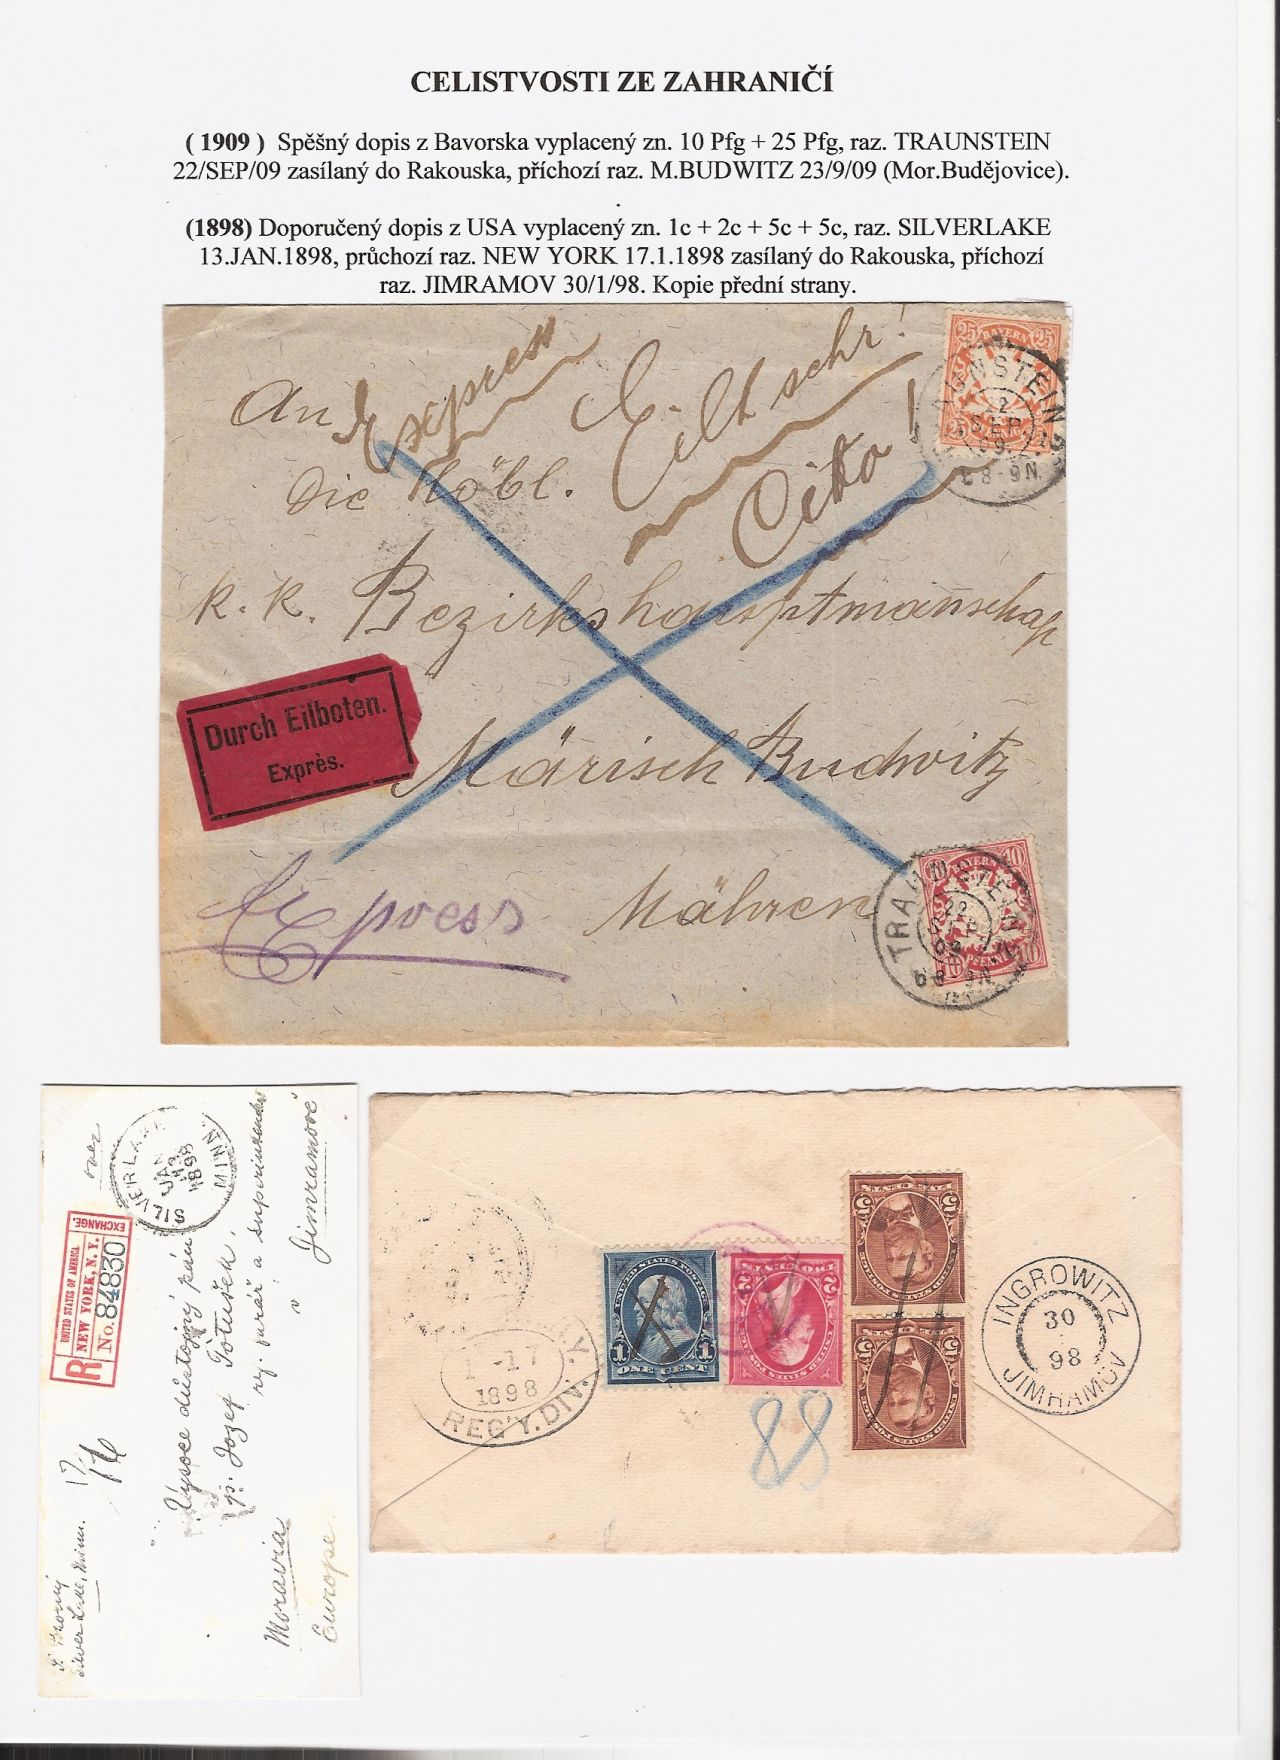 CELISTVOSTI ZE ZAHRANIČÍ
( 1909 ) Spěšný dopis z Bavorska vyplacený zn. 10 Pfg + 25 Pfg, raz. TRAUNSTEIN
22/SEP/09 zasílaný do Rakouska, příchozí raz. M.BUDWITZ 23/9/09 (Mor.Budějovice).
(1898) Doporučený dopis z USA vyplacený zn. 1c + 2c + 5c + 5c, raz. SILVERLAKE
13.JAN.1898, průchozí raz. NEW YORK 17.1.1898 zasílaný do Rakouska, příchozí
raz. JIMRAMOV 30/1/98. Kopie přední strany.
Express
Eilt sehr!
Cito!
An
Die Löbl.
k. k. Bezirkshauptmannschaft
Märisch Budwitz
Mähren
Durch Eilboten.
Exprès.
Express
25 BAYERN 25
25 PFENNIG 25
TRAUNSTEIN
22
SEP
09
8-9N.
10 BAYERN 10
10 PFENNIG 10
TRAUNSTEIN
22
SEP
09
8-9N.
Silver Lake, Minn.
17/16
R
UNITED STATES OF AMERICA
NEW YORK, N. Y.
No. 84830
EXCHANGE.
over
SILVER LAKE
JAN
13
1898
MINN.
Vysoce důstojný pán
p. Jozef Totušek,
ev. farář a superintendent
v
Jimramově
Moravia
Europe.
1-17
1898
REG'Y. DIV.
UNITED STATES POSTAGE
1 ONE CENT 1
88
INGROWITZ
30
98
JIMRAMOV